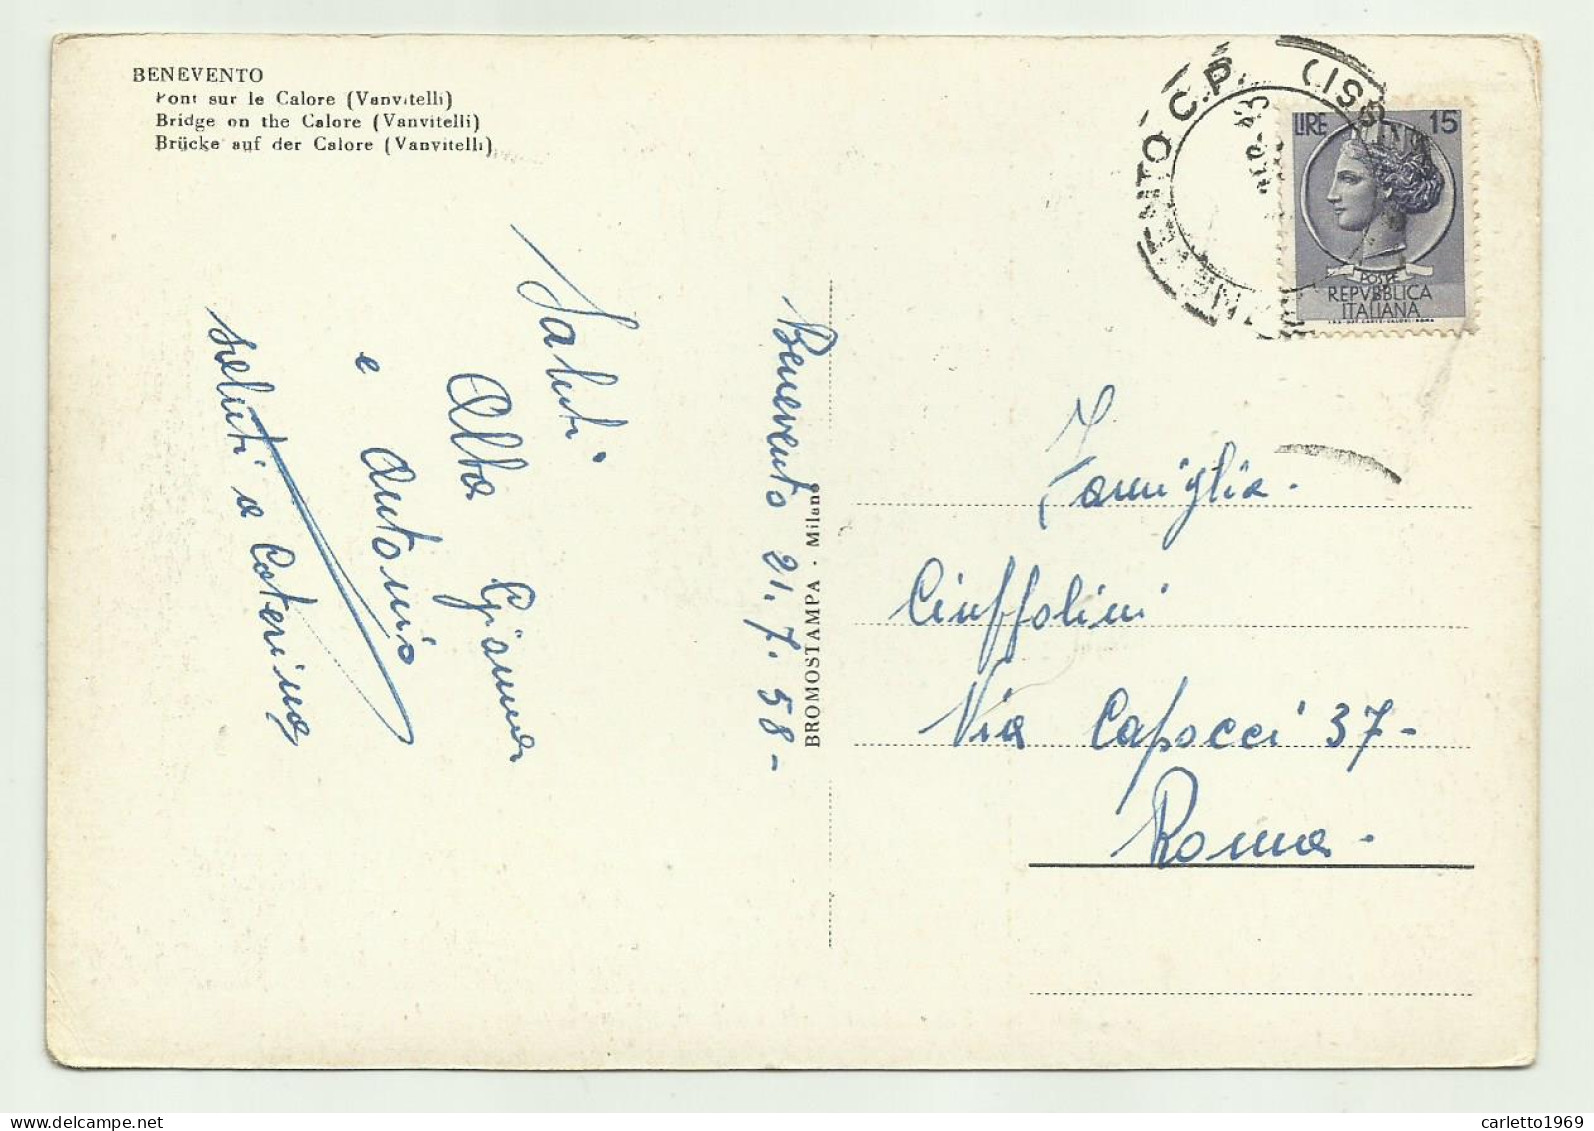 BENEVENTO
Pont sur le Calore (Vanvitelli)
Bridge on the Calore (Vanvitelli)
Brücke auf der Calore (Vanvitelli)
Benevento 21.7.58-
Saluti
Alba Gianna
e Antonio
saluti a Caterina
BROMOSTAMPA · Milano
C.P.
LIRE 15
POSTE
REPVBBLICA
ITALIANA
Famiglia.
Ciuffolini
Via Capocci 37-
Roma-
carletto1969